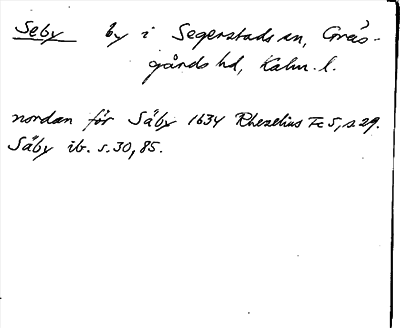 Seby by i Segerstads sn, Gräs-
gårds hd, Kalm. l.
nordan för Säby 1634 Rhezelius Fc 5, s 29.
Säby ib. s. 30, 85.